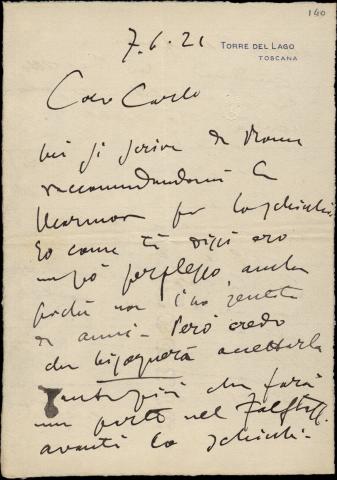 140
7.6.21
TORRE DEL LAGO
TOSCANA
Caro Carlo
mi si scrive da Roma
raccomandandomi la
per lo schicchi
Io come ti dissi ero
un pò perplesso anche
perché non l'ho sentita
da anni - Però credo
che bisognerà accettarla
Tanto più che farà
un parto nel Falstaff
avanti lo Schicchi.